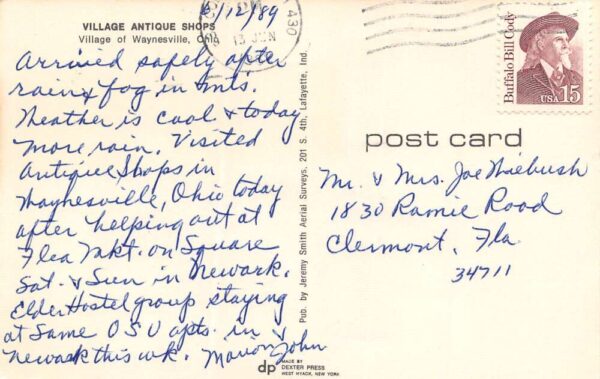 VILLAGE ANTIQUE SHOPS
Village of Waynesville, Ohio
6/12/89
Arrived safely after
rain & fog in mt's.
Weather is cool & today
more rain. Visited
Antique Shops in
Waynesville, Ohio today
after helping out at
Flea Mkt. on Square
Sat. & Sun in Newark.
Elder Hostel group staying
at same OSU apts. in
Newark this wk. Marion & John
Pub. by Jeremy Smith Aerial Surveys, 201 S. 4th, Lafayette, Ind.
430
PM
13 JUN
Buffalo Bill Cody
USA 15
post card
Mr. & Mrs. Joe Niebush
1830 Ramie Road
Clermont, Fla.
34711
dp
MADE BY
DEXTER PRESS
WEST NYACK, NEW YORK